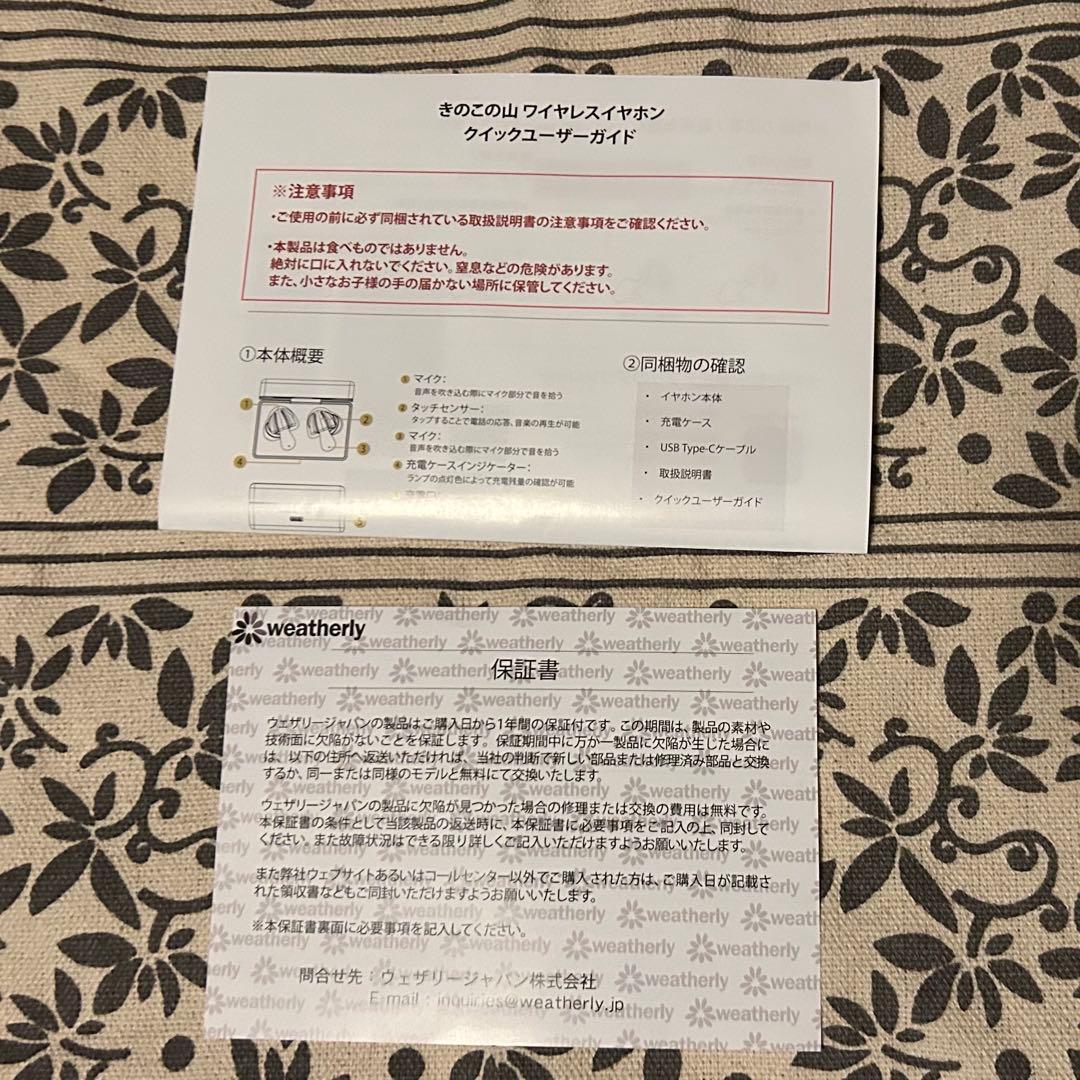 きのこの山 ワイヤレスイヤホン
クイックユーザーガイド
※注意事項
・ご使用の前に必ず同梱されている取扱説明書の注意事項をご確認ください。
・本製品は食べものではありません。
絶対に口に入れないでください。窒息などの危険があります。
また、小さなお子様の手の届かない場所に保管してください。
①本体概要
① マイク：
音声を吹き込む際にマイク部分で音を拾う
② タッチセンサー：
タップすることで電話の応答、音楽の再生が可能
③ マイク：
音声を吹き込む際にマイク部分で音を拾う
④ 充電ケースインジケーター：
ランプの点灯色によって充電残量の確認が可能
1
2
3
4
5
②同梱物の確認
・ イヤホン本体
・ 充電ケース
・ USB Type-Cケーブル
・ 取扱説明書
・ クイックユーザーガイド
weatherly
保証書
ウェザリージャパンの製品はご購入日から1年間の保証付です。この期間は、製品の素材や
技術面に欠陥がないことを保証します。保証期間中に万が一製品に欠陥が生じた場合に
は、以下の住所へ返送いただければ、当社の判断で新しい部品または修理済み部品と交換
するか、同一または同様のモデルと無料にて交換いたします。
ウェザリージャパンの製品に欠陥が見つかった場合の修理または交換の費用は無料です。
本保証書の条件として当該製品の返送時に、本保証書に必要事項をご記入の上、同封して
ください。また故障状況はできる限り詳しくご記入いただけますようお願いいたします。
また弊社ウェブサイトあるいはコールセンター以外でご購入された方は、ご購入日が記載さ
れた領収書などもご同封いただけますようお願いいたします。
※本保証書裏面に必要事項を記入してください。
問合せ先：ウェザリージャパン株式会社
E-mail：inquiries@weatherly.jp